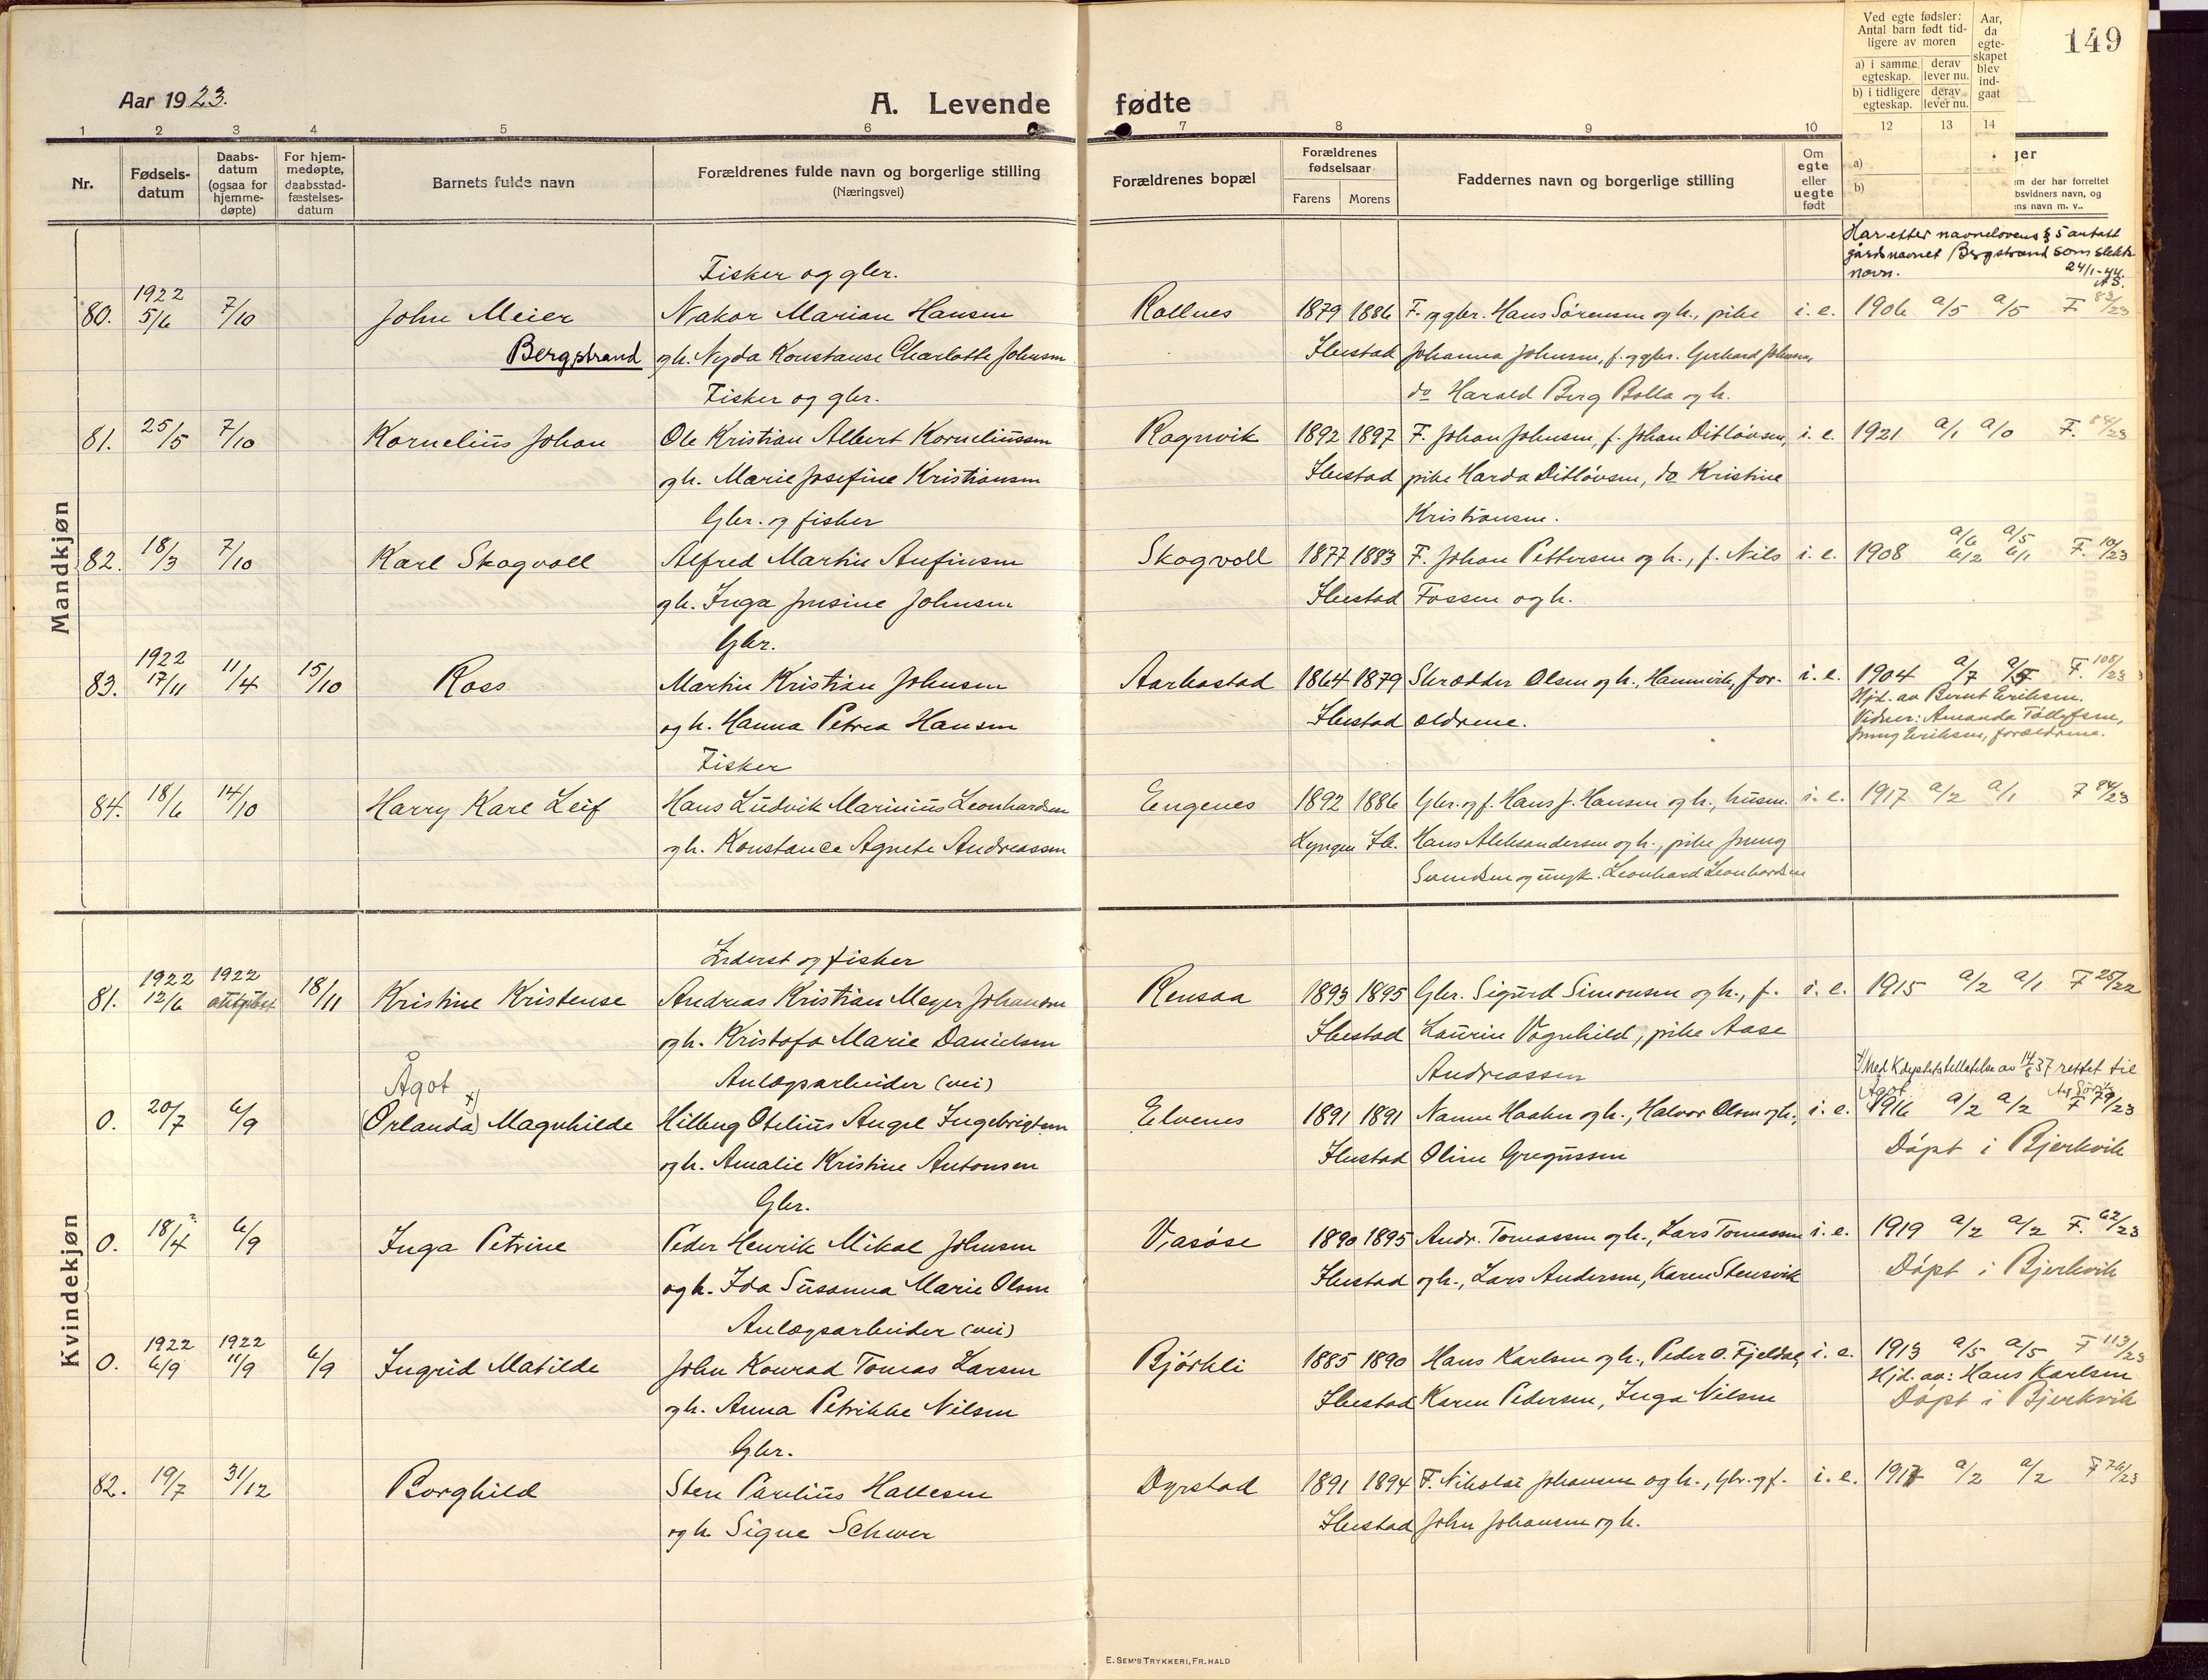 149
Aar 1923.
A. Levende fødte
Ved egte fødsler: Antal barn født tidligere av moren
Aar, da egteskapet blev indgaat
a) i samme egteskap. derav lever nu.
b) i tidligere egteskap. derav lever nu.
1 2 3 4 5 6 7 8 9 10 12 13 14
Nr.
Fødselsdatum
Daabsdatum (ogsaa for hjemmedøpte)
For hjemmedøpte, daabsstadfæstelsesdatum
Barnets fulde navn
Forældrenes fulde navn og borgerlige stilling
(Næringsvei)
Forældrenes bopæl
Forældrenes fødselsaar
Farens Morens
Faddernes navn og borgerlige stilling
Om egte eller uegte født
a)
b)
Har etter navnelovens § 5 antatt
gårdsnavnet Bergstrand som slekts-
navn. 24/1-44.
Mandkjøn
Fisker og gbr.
80. 1922 5/6 7/10 John Meier Nakor Marian Hansen Rollnes 1879 1886 F. og gbr. Hans Sørensen og h., pike i. e. 1906 a/5 a/5 F 83/23
Bergstrand og h. Nyda Konstanse Charlotte Johnsen Ibestad Johanna Johnsen, f. og gbr. Gerhard Johnsen,
Fisker og gbr. do Harald Berg Bolla og h.
81. 25/5 7/10 Kornelius Johan Ole Kristian Albert Korneliussen Rognvik 1892 1897 F. Johan Johnsen, f. Johan Ditløvsen, i. e. 1921 a/1 a/0 F. 84/23
og h. Marie Josefine Kristiansen Ibestad pike Harda Ditløvsen, do Kristine
Gbr. og fisker Kristiansen.
82. 18/3 7/10 Karl Skogvoll Alfred Martin Anfinsen Skogvoll 1877 1883 F. Johan Pettersen og h., f. Nils i. e. 1908 a/6 b/2 a/5 b/1 F. 10/23
og h. Inga Jensine Johnsen Ibestad Fossen og h.
Gbr.
83. 1922 17/11 11/4 15/10 Ross Martin Kristian Johnsen Aarbostad 1864 1879 Skrædder Olsen og h., Hamnvik, for- i. e. 1904 a/7 F. 108/23
og h. Hanna Petrea Hansen Ibestad ældrene. Hjd. av Bernt Eriksen.
Vidner: Amanda Tollefsen,
Jenny Eriksen, forældrene.
Fisker
84. 18/6 14/10 Harry Karl Leif Hans Ludvik Marinius Leonhardsen Engenes 1892 1886 Gbr. og f. Hans J. Hansen og h., husm. i. e. 1917 a/2 a/1 F 94/23
og h. Konstance Agnete Andreassen Lyngen Ib. Hans Aleksandersen og h., pike Jenny
Svendsen og ungk. Leonhard Leonhardsen
Kvindekjøn
Inderst og fisker
81. 1922 12/6 1922 18/11 Kristine Kristense Andreas Kristian Meyer Johansen Rensaa 1893 1895 Gbr. Sigurd Simonsen og h., f. i. e. 1915 a/2 a/1 F 25/22
og h. Kristofa Marie Danielsen Ibestad Laurin Vognhild, pike Aase
Ågot x) Anlægsarbeider (vei) Andreassen
0. 20/7 6/9 (Orlanda) Magnhilde Hilberg Otelius Angel Ingebrigtsen Elvenes 1891 1891 Nanne Haaken og h., Halvor Olsen og h., i. e. 1916 a/2 a/2 F 79/23
x) Med K.dep.tets tillatelse av 14/8 37 rettet til Ågot
og h. Amalie Kristine Antonsen Ibestad Oline Gregussen Døpt i Bjerkvik
Gbr.
0. 18/4 6/9 Inga Petrine Peder Henrik Mikal Johnsen Vasøse 1890 1895 Andr. Tomassen og h., Lars Tomassen i. e. 1919 a/2 a/2 F. 62/23
og h. Ida Susanna Marie Olsen Ibestad og h., Lars Andersen, Karen Stensvik Døpt i Bjerkvik
Anlægsarbeider (vei)
0. 1922 6/9 1922 11/9 6/9 Ingrid Matilde John Konrad Tomas Larsen Bjørkli 1885 1890 Hans Karlsen og h., Peder O. Fjeldal, i. e. 1913 a/5 a/5 F 113/23
Hjd. av: Hans Karlsen
og h. Anna Petrikke Nilsen Ibestad Karen Pedersen, Inga Nilsen Døpt i Bjerkvik
Gbr.
82. 19/7 31/12 Borghild Sten Paulius Hallesen Dyrstad 1891 1894 F. Nikolai Johansen og h., gbr. og f. i. e. 1917 a/2 a/2 F 76/23
og h. Signe Schwer Ibestad John Johansen og h.
E. SEM'S TRYKKERI, FR. HALD